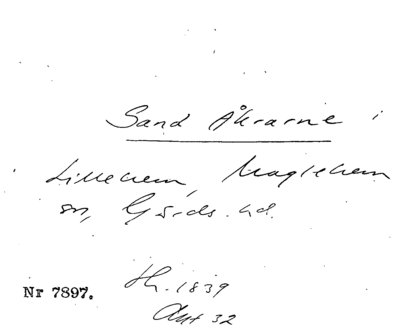 Sand Åkrarne i
Lillehem, Maglehem
sn, Gärds. hd.
Nr 7897.
1839
Akt 32